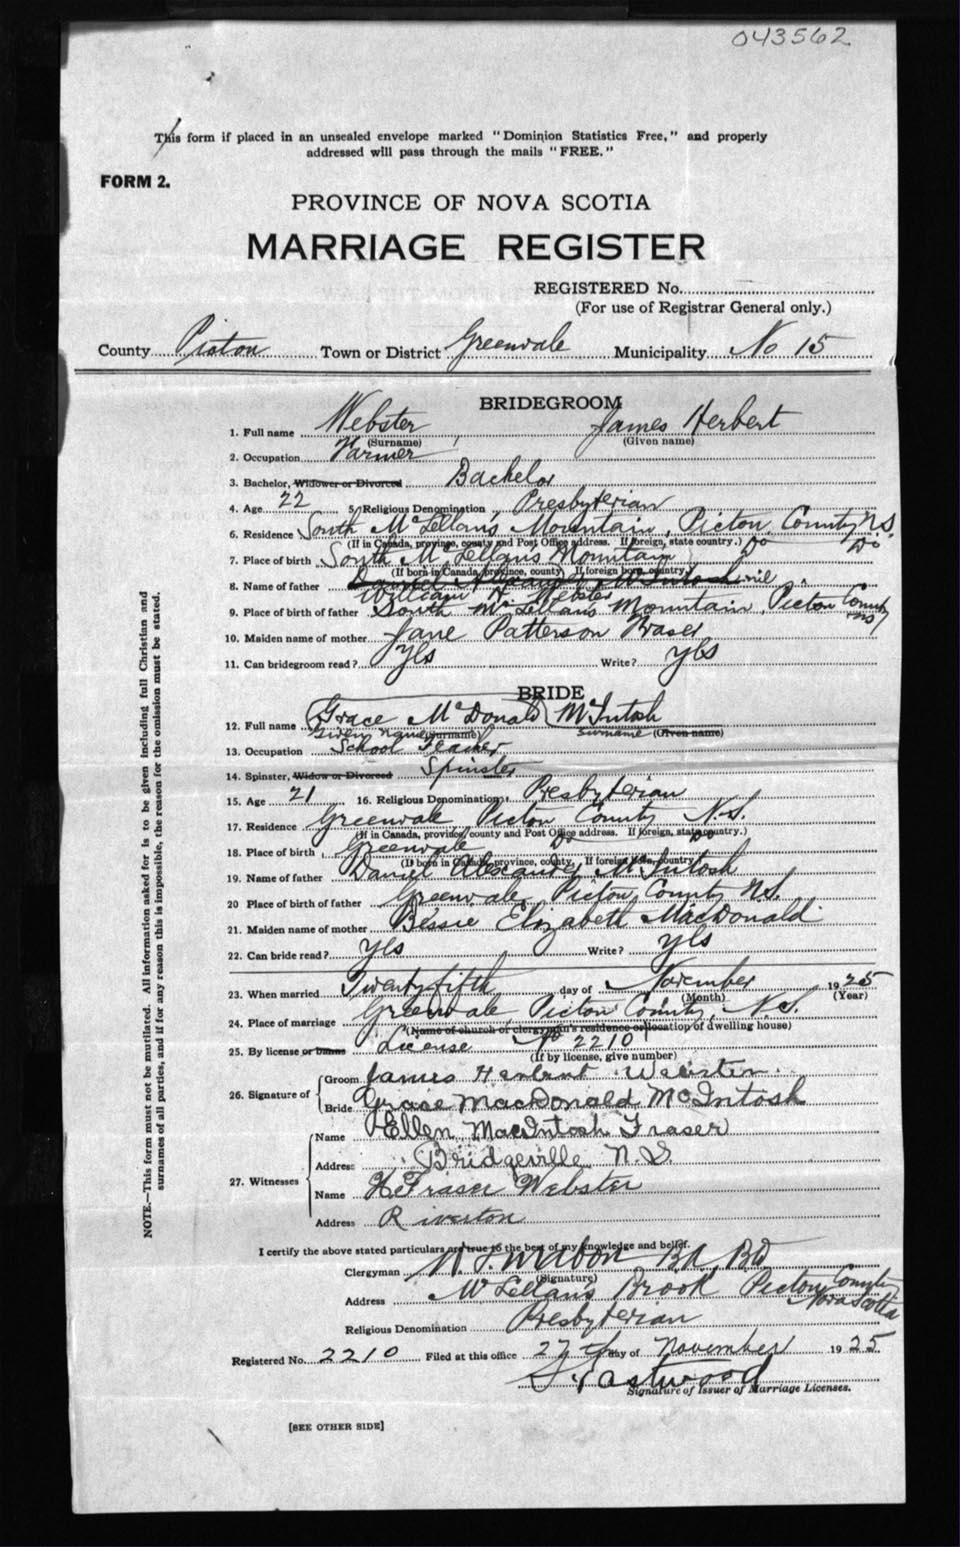 043562
This form if placed in an unsealed envelope marked "Dominion Statistics Free," and properly
addressed will pass through the mails "FREE."
FORM 2.
PROVINCE OF NOVA SCOTIA
MARRIAGE REGISTER
REGISTERED No.
(For use of Registrar General only.)
County Pictou Town or District Greenvale Municipality No 15
BRIDEGROOM
1. Full name Webster James Herbert
(Surname) (Given name)
2. Occupation Farmer
3. Bachelor, Widower or Divorced Bachelor
4. Age 22 5. Religious Denomination Presbyterian
6. Residence South McLellans Mountain, Pictou County N.S.
(If in Canada, province, county and Post Office address. If foreign, state country.) Do Do
7. Place of birth South McLellans Mountain
(If born in Canada, province, county. If foreign born, country.)
8. Name of father Daniel Alexander McIntosh
William H. Webster
9. Place of birth of father South McLellans Mountain, Pictou County NS
10. Maiden name of mother Jane Patterson Fraser
11. Can bridegroom read? Yes Write? yes
BRIDE
12. Full name Grace McDonald McIntosh
Given name (Surname) Surname (Given name)
13. Occupation School Teacher
14. Spinster, Widow or Divorced Spinster
15. Age 21 16. Religious Denomination Presbyterian
17. Residence Greenvale Pictou County N.S.
(If in Canada, province, county and Post Office address. If foreign, state country.)
18. Place of birth Greenvale Do Do
(If born in Canada, province, county. If foreign born, country)
19. Name of father Daniel Alexander McIntosh
20 Place of birth of father Greenvale, Pictou County N.S.
21. Maiden name of mother Bessie Elizabeth MacDonald
22. Can bride read? Yes Write? yes
23. When married Twenty-fifth day of November 1925
(Month) (Year)
24. Place of marriage Greenvale, Pictou County, N.S.
(Name of church or clergyman's residence or location of dwelling house)
25. By license or banns License No 2210
(If by license, give number)
26. Signature of Groom James Herbert Webster
Bride Grace MacDonald McIntosh
27. Witnesses
Name Ellen MacIntosh Fraser
Address Bridgeville N.S.
Name H. Fraser Webster
Address Riverton
I certify the above stated particulars are true to the best of my knowledge and belief.
Clergyman Mabon BA. BD
(Signature)
Address McLellan's Brook Pictou County Nova Scotia
Religious Denomination Presbyterian
Registered No. 2210 Filed at this office 27th day of November 1925
Eastwood
Signature of Issuer of Marriage Licenses.
[SEE OTHER SIDE]
NOTE.—This form must not be mutilated. All information asked for is to be given including full Christian and
surnames of all parties, and if for any reason this is impossible, the reason for the omission must be stated.